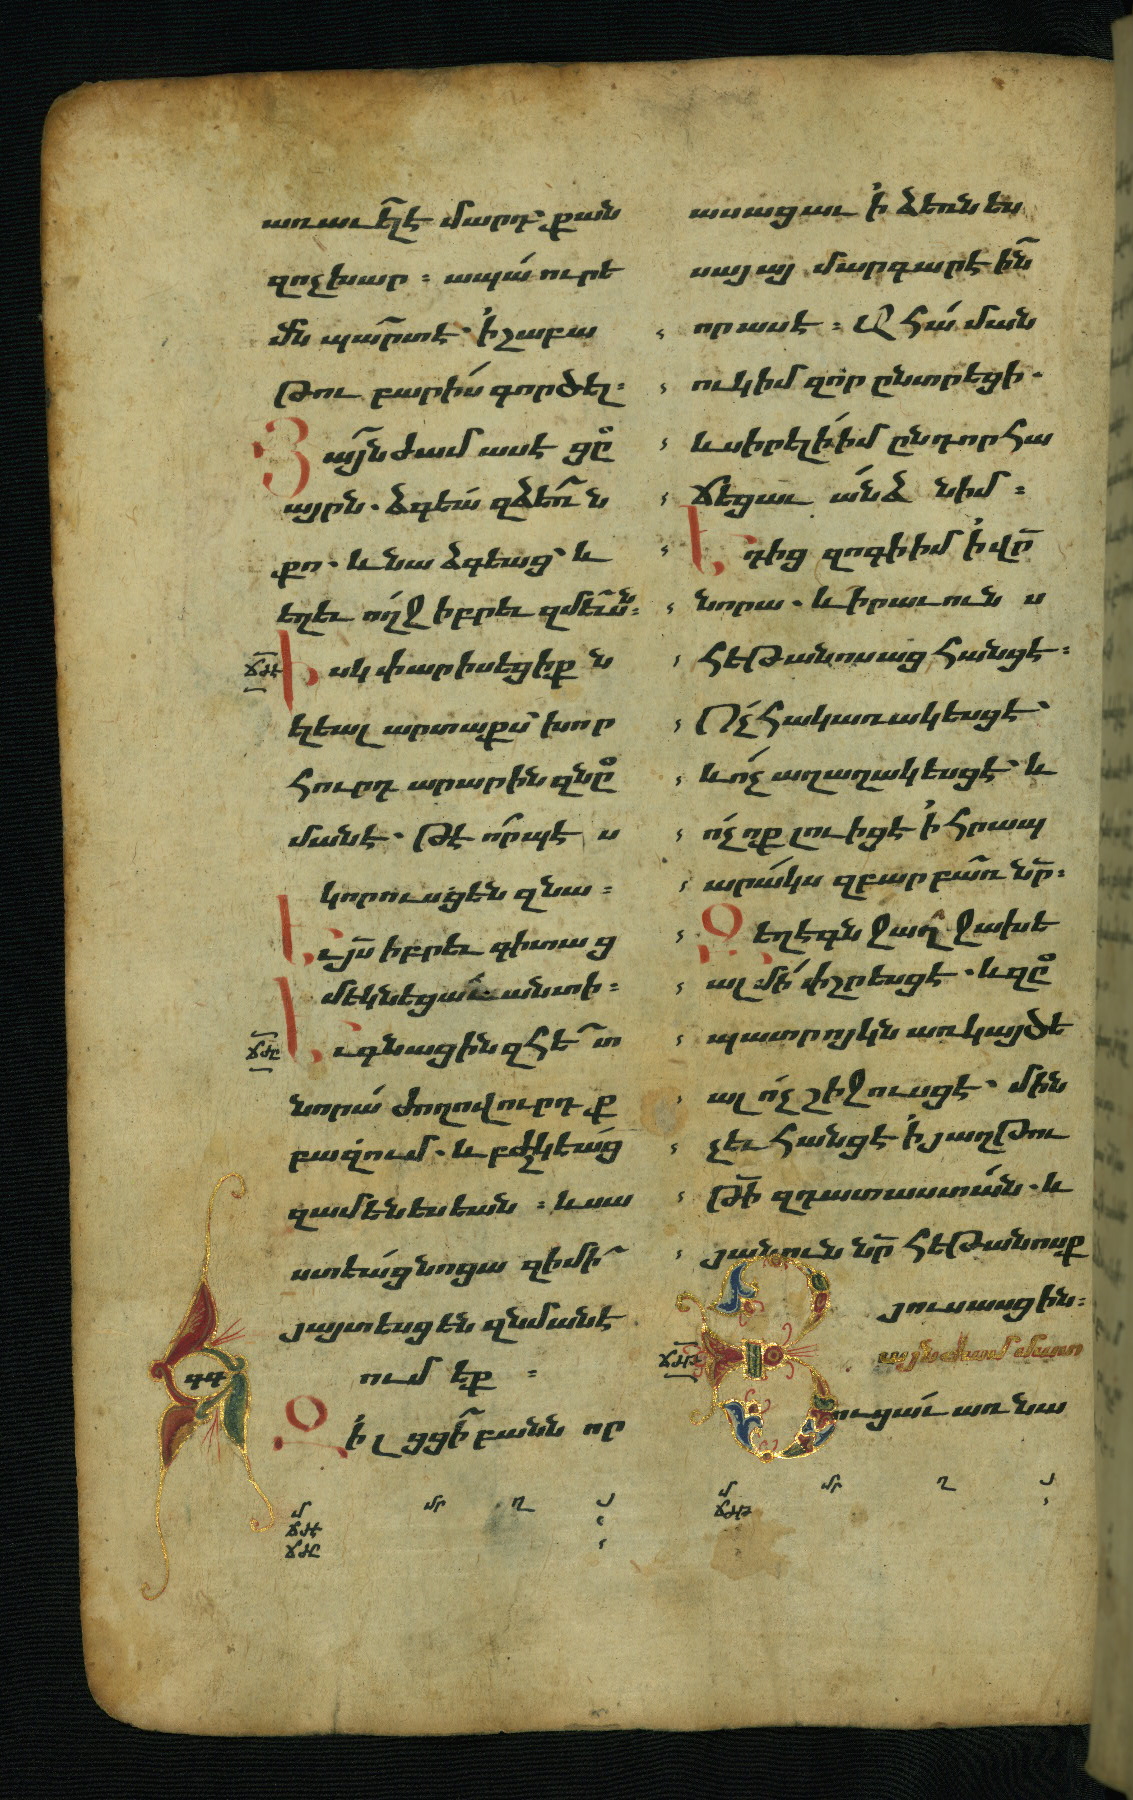 առաւել է մարդ քան
զոչխար ։ ապա ուրե
մն պարտ է · ի շաբա
թու բարիս գործել ։
Յայնժամ ասէ ցը
այրն · ձգեա զձեռն
քո · և նա ձգեաց՝ և
եղև ողջ իբրև զմեւսն ։
ՃԺԷ Իսկ փարիսեցիքն
ելեալ արտաքս՝ խոր
հուրդ արարին զնը
մանէ · թէ որպէս
կորուսցեն զնա ։
Եւ յս իբրև գիտաց
մեկնեցաւ անտի ։
ՃԺԸ Եւ գնացին զհետ
նորա ժողովուրդք
բազում · և բժշկեաց
զամենեսեան ։ և սա
ստեաց նոցա զի մի
յայտեսցեն զնմանէ
ում եք ։
գգ
Զի լցցի բանն որ
մ մր ղ յ
ՃԺԷ
ՃԺԸ
ասացաւ ի ձեռն ես
սայայ մարգարէին
որ ասէ ։ Ահա ման
ուկ իմ զոր ընտրեցի ·
և սիրելի իմ ընդ որ հա
ճեցաւ անձն իմ ։
Եդից զոգի իմ ի վր
նորա · և իրաւունս
հեթանոսաց հանցէ ։
Ոչ հակառակեսցէ՝
և ոչ աղաղակեսցէ՝ և
ոչ ոք լուիցէ ի հրապ
արակս զբարբառ նր ։
Զեղեգն ջաղ ջախե
ալ մի փշրեսցէ · և զը
պատրոյկն առկայծե
ալ ոչ շիջուսցէ · մին
չև հանցէ ի յաղթու
թի զդատաստան · և
յանուն նր հեթանոսք
յուսասցին ։
ՃԺԹ Յայնժամ մատ
ուցաւ առ նա
մ մր ղ յ
ՃԺԹ